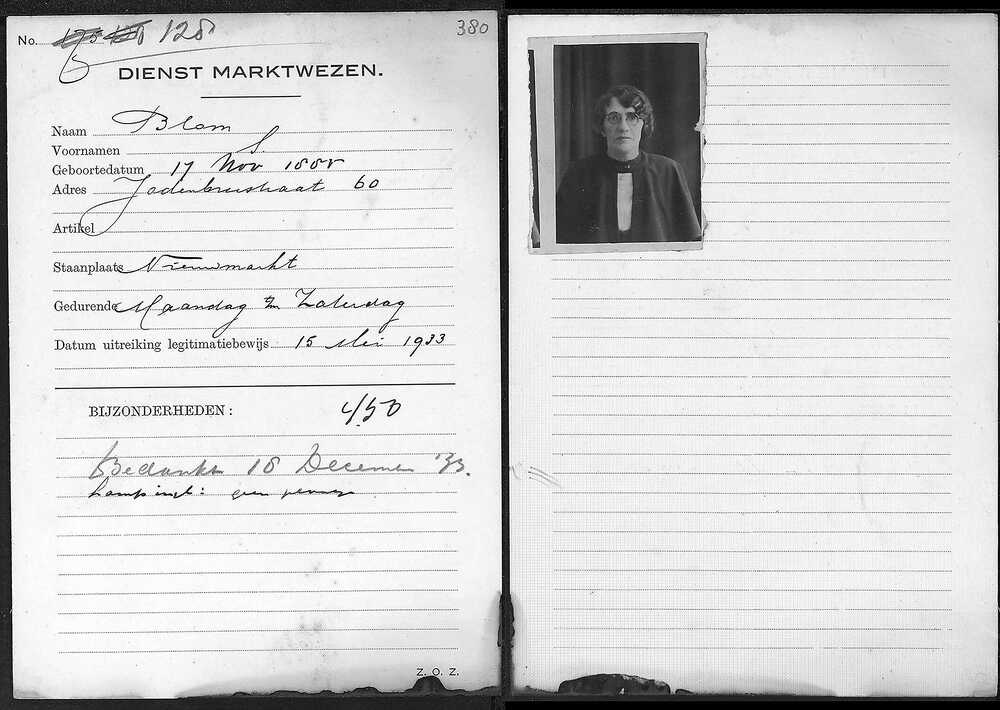 380
No. 175 128 128
DIENST MARKTWEZEN.
Naam Blom
Voornamen S.
Geboortedatum 17 Nov 1888
Adres Jodenbreestraat 60
Artikel
Staanplaats Nieuwmarkt
Gedurende Maandag t/m Zaterdag
Datum uitreiking legitimatiebewijs 15 Mei 1933
BIJZONDERHEDEN:
4.50
Bedankt 18 December '33.
geen
Z. O. Z.